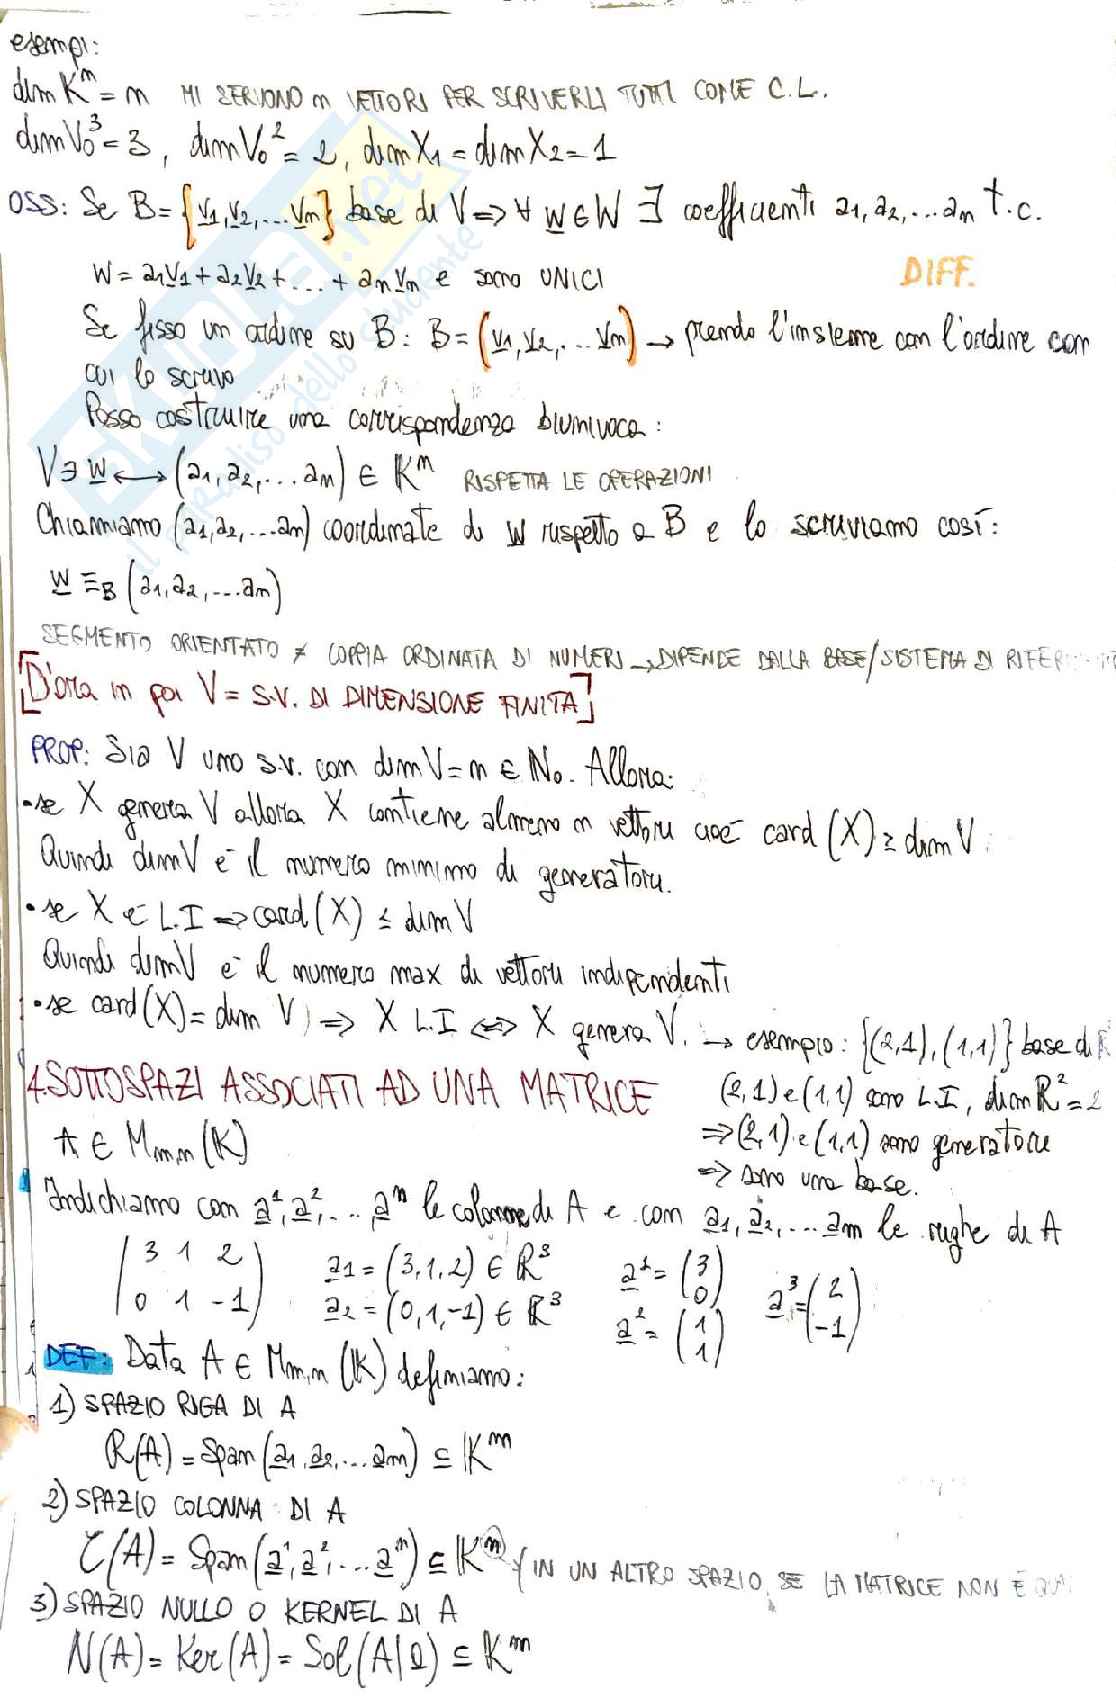 esempi:
dim Kⁿ = n MI SERVONO n VETTORI PER SCRIVERLI TUTTI COME C.L.
dim V₀³ = 3, dim V₀² = 2, dim X₁ = dim X₂ = 1
OSS: Se B = {v₁, v₂, ... vₙ} base di V => ∀ w ∈ W ∃ coefficienti a₁, a₂, ... aₙ t.c.
w = a₁v₁ + a₂v₂ + ... + aₙvₙ e sono UNICI
DIFF.
Se fisso un ordine su B: B = (v₁, v₂, ... vₙ) → prendo l'insieme con l'ordine con
cui lo scrivo
Posso costruire una corrispondenza biunivoca:
V ∋ w ⟷ (a₁, a₂, ... aₙ) ∈ Kⁿ RISPETTA LE OPERAZIONI
Chiamiamo (a₁, a₂, ... aₙ) coordinate di w rispetto a B e lo scriviamo così:
w ≡B (a₁, a₂, ... aₙ)
SEGMENTO ORIENTATO ≠ COPPIA ORDINATA DI NUMERI → DIPENDE DALLA BASE/SISTEMA DI
[D'ora in poi V = S.V. DI DIMENSIONE FINITA]
PROP: Sia V uno s.v. con dim V = n ∈ N₀. Allora:
• se X genera V allora X contiene almeno n vettori cioè card (X) ≥ dim V
Quindi dim V è il numero minimo di generatori.
• se X è L.I => card (X) ≤ dim V
Quindi dim V è il numero max di vettori indipendenti
• se card (X) = dim V => X L.I <=> X genera V. → esempio: {(2,1), (1,1)} base di
(2,1) e (1,1) sono L.I, dim R² = 2
=> (2,1) e (1,1) sono generatori
=> sono una base.
4. SOTTOSPAZI ASSOCIATI AD UNA MATRICE
A ∈ Mm,n (K)
Indichiamo con a¹, a², ... aⁿ le colonne di A e con a₁, a₂, ... aₘ le righe di A
(3 1 2
0 1 -1)
a₁ = (3,1,2) ∈ R³
a₂ = (0,1,-1) ∈ R³
a¹ = (3
0)
a² = (1
1)
a³ = (2
-1)
DEF: Data A ∈ Mm,n (K) definiamo:
1) SPAZIO RIGA DI A
R(A) = Span (a₁, a₂, ... aₘ) ⊆ Kⁿ
2) SPAZIO COLONNA DI A
C(A) = Span (a¹, a², ... aⁿ) ⊆ Kᵐ IN UN ALTRO SPAZIO SE LA MATRICE NON È
3) SPAZIO NULLO O KERNEL DI A
N(A) = Ker (A) = Sol (A|0) ⊆ Kⁿ
SKUOLA.net
il paradiso dello studente